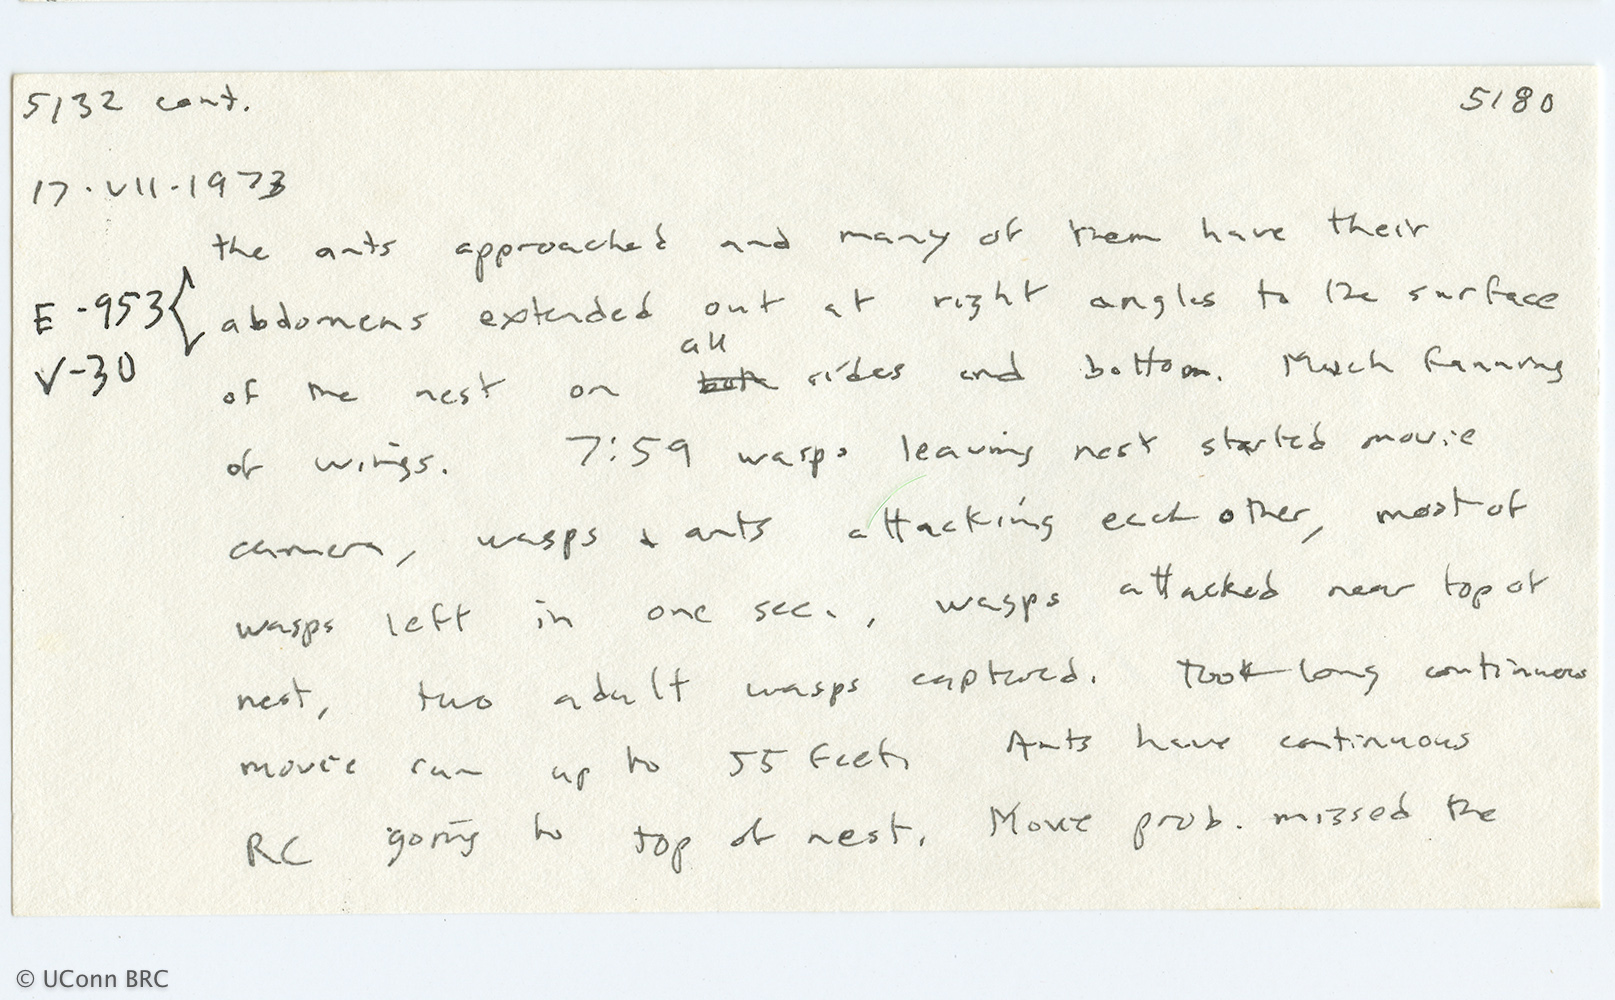 5132 cont. 5180
17·VII·1973
the ants approached and many of them have their
E-953 { abdomens extended out at right angles to the surface
all
V-30 of the nest on both sides and bottom. Much fanning
of wings. 7:59 wasps leaving nest started movie
camera, wasps & ants attacking each other, most of
wasps left in one sec., wasps attacked near top of
nest, two adult wasps captured. Took long continuous
movie run up to 55 feet, Ants have continuous
RC going to top of nest. Movie prob. missed the
© UConn BRC